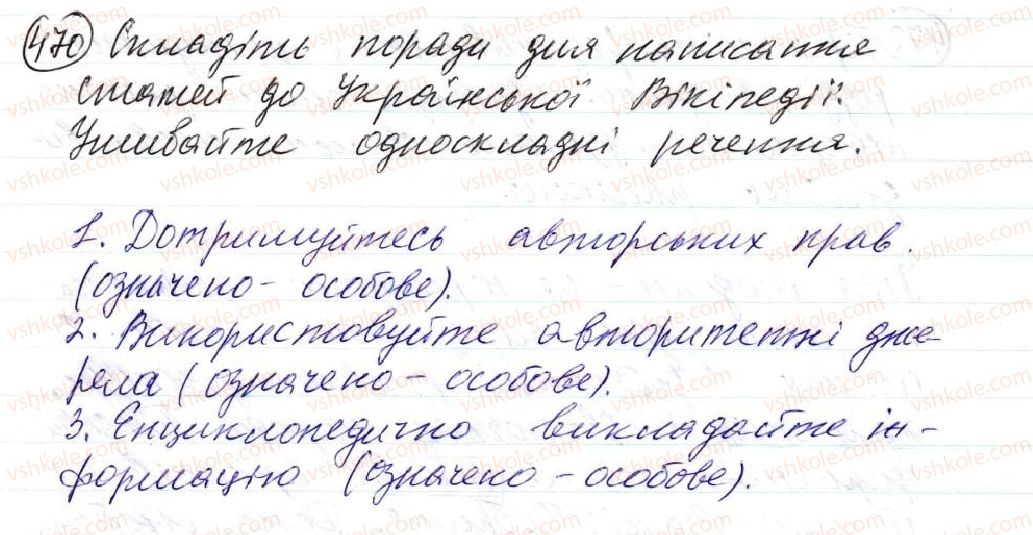 470 Складіть поради для написання
статей до Української Вікіпедії.
Уживайте односкладні речення.
1. Дотримуйтесь авторських прав.
(означено - особове).
2. Використовуйте авторитетні дже-
рела (означено - особове).
3. Енциклопедично викладайте ін-
формацію (означено - особове).